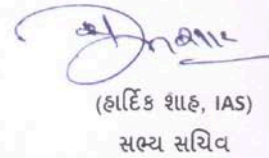 (હાર્દિક શાહ, IAS)
સભ્ય સચિવ